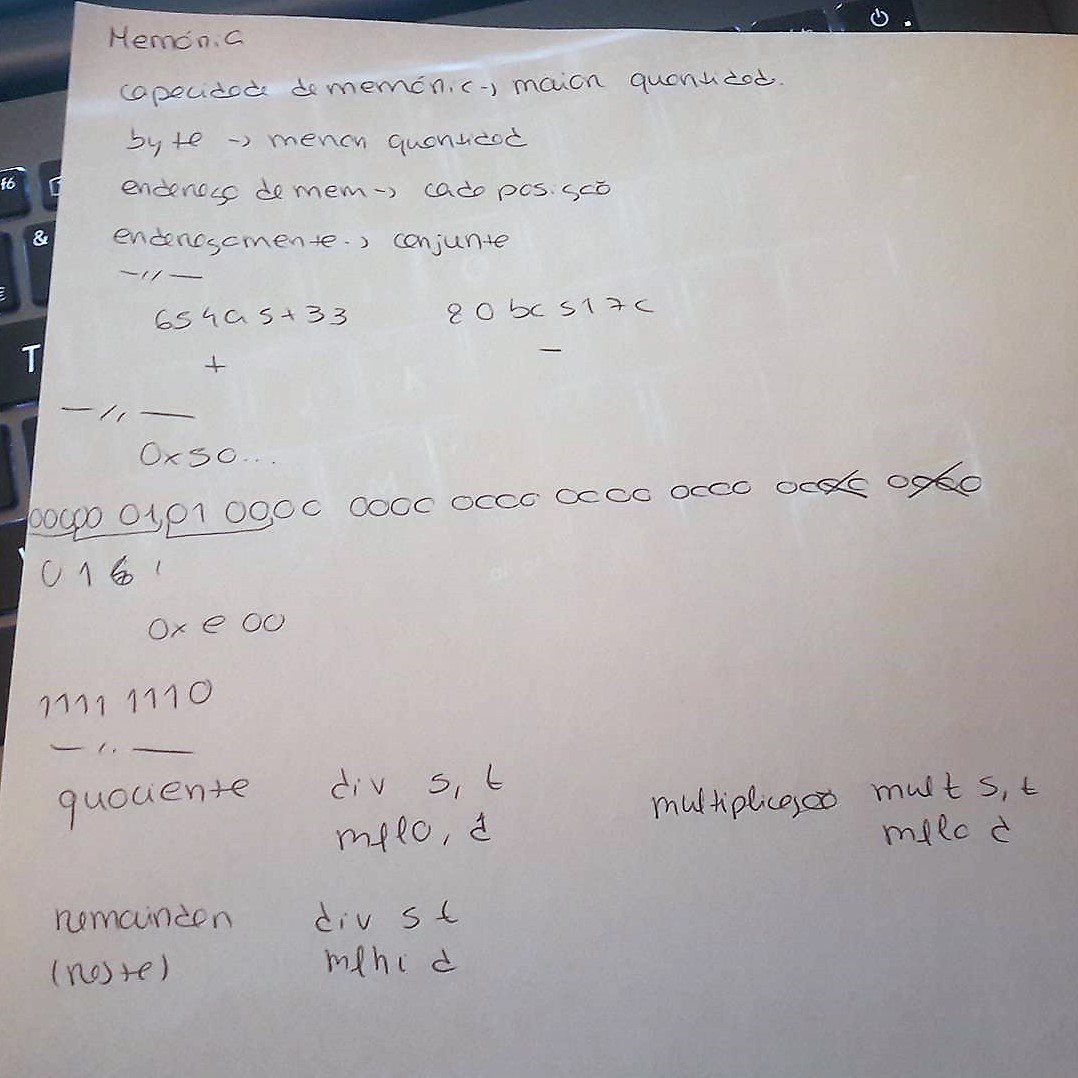 Memória
capacidade de memória -> maior quantidad.
byte -> menor quantidad
endereço de mem -> cada posição
endereçamento -> conjunto
-//-
654a5f33 80bc517c
+ -
-//-
0x50...
0000 0101 0000 0000 0000 0000 0000
0 1 6
0x e 00
1111 1110
-//-
quociente div s, t multiplicação mult s, t
mflo, d mflo d
remainder div s t
(resto) mfhi d
f6
&
T